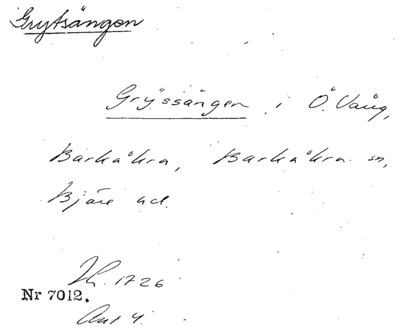 Grytsängen
Gryssängen i Ö. Vång,
Barkåkra, Barkåkra sn,
Bjäre hd.
1726
Nr 7012.
Akt 4.